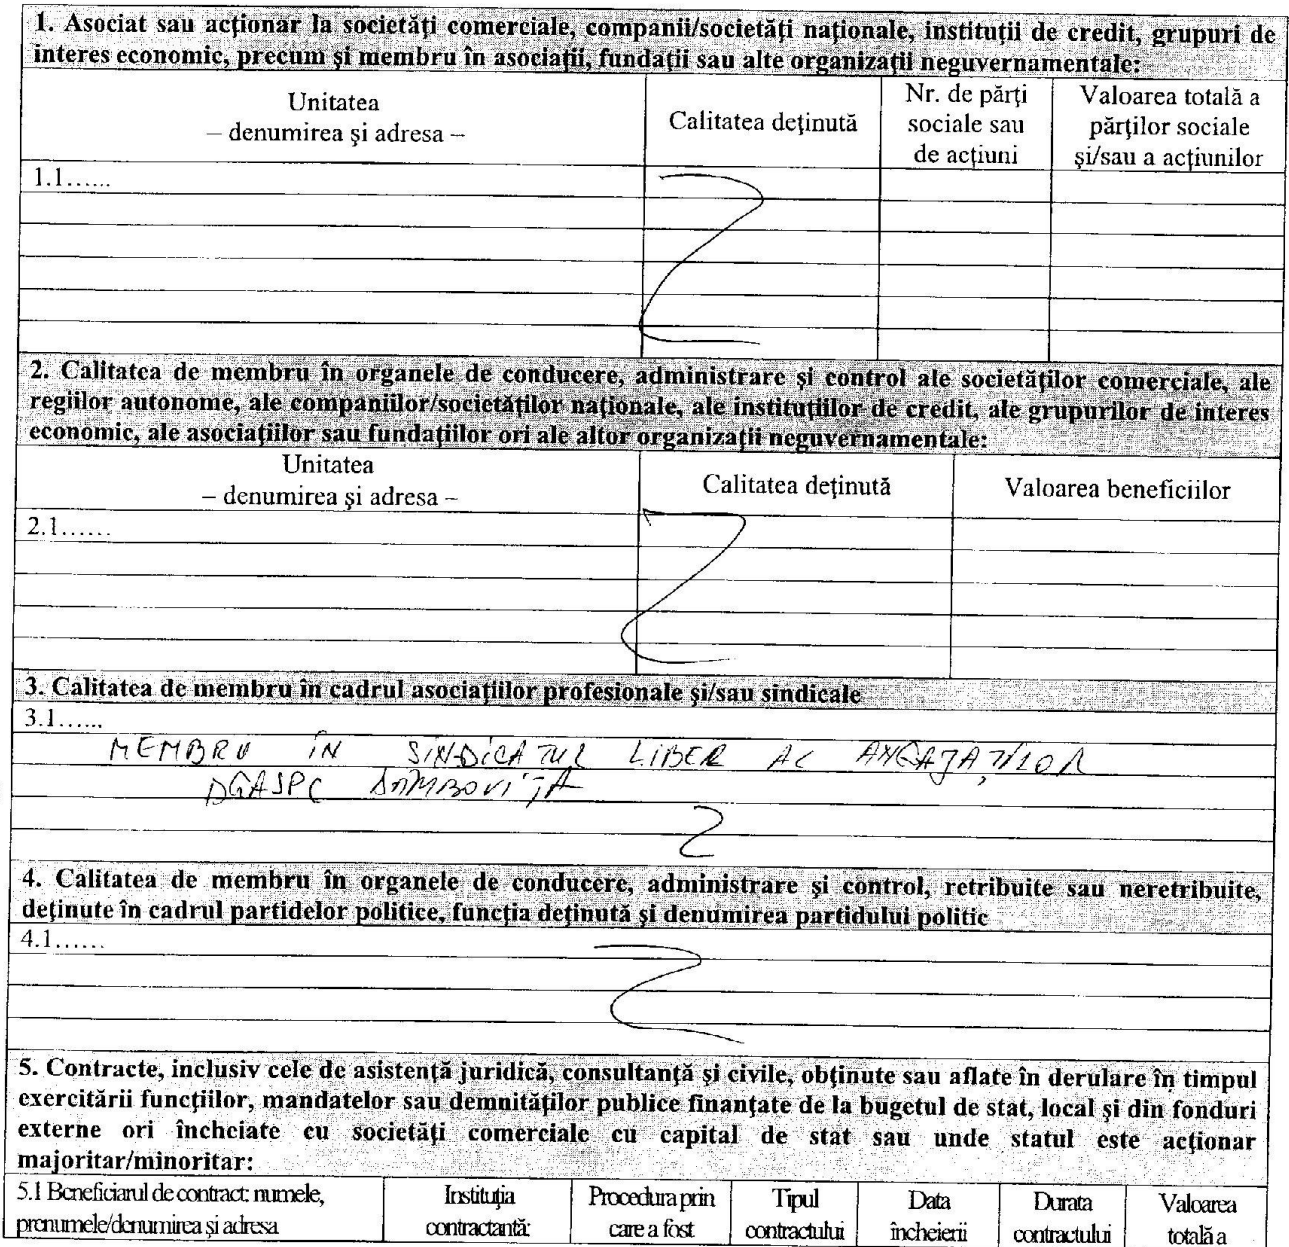 1. Asociat sau acţionar la societăţi comerciale, companii/societăţi naţionale, instituţii de credit, grupuri de
interes economic, precum şi membru în asociaţii, fundaţii sau alte organizaţii neguvernamentale:
Unitatea
– denumirea şi adresa –
Calitatea deţinută
Nr. de părţi
sociale sau
de acţiuni
Valoarea totală a
părţilor sociale
şi/sau a acţiunilor
1.1......
2. Calitatea de membru în organele de conducere, administrare şi control ale societăţilor comerciale, ale
regiilor autonome, ale companiilor/societăţilor naţionale, ale instituţiilor de credit, ale grupurilor de interes
economic, ale asociaţiilor sau fundaţiilor ori ale altor organizaţii neguvernamentale:
Unitatea
– denumirea şi adresa –
Calitatea deţinută
Valoarea beneficiilor
2.1......
3. Calitatea de membru în cadrul asociaţiilor profesionale şi/sau sindicale
3.1......
MEMBRU ÎN SINDICATUL LIBER AL ANGAJAȚILOR
DGASPC DÂMBOVIȚA
4. Calitatea de membru în organele de conducere, administrare şi control, retribuite sau neretribuite,
deţinute în cadrul partidelor politice, funcţia deţinută şi denumirea partidului politic
4.1......
5. Contracte, inclusiv cele de asistenţă juridică, consultanţă şi civile, obţinute sau aflate în derulare în timpul
exercitării funcţiilor, mandatelor sau demnităţilor publice finanţate de la bugetul de stat, local şi din fonduri
externe ori încheiate cu societăţi comerciale cu capital de stat sau unde statul este acţionar
majoritar/minoritar:
5.1 Beneficiarul de contract: numele,
prenumele/denumirea şi adresa
Instituţia
contractantă:
Procedura prin
care a fost
Tipul
contractului
Data
încheierii
Durata
contractului
Valoarea
totală a